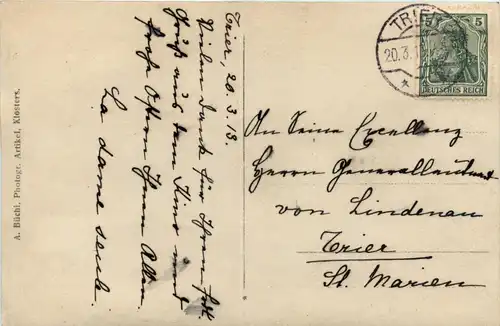 Trier, 20. 3. 13.
Vielen Dank für Ihren frdl.
Gruß aus dem Kino und
frohe Ostern Ihnen Allen.
La dame seule.
TRIER
20.3.1
5
DEUTSCHES REICH
An Seine Excellenz
Herrn Generalleutnant
von Lindenau
Trier
St. Marien
A. Büchi. Photogr. Artikel, Klosters.